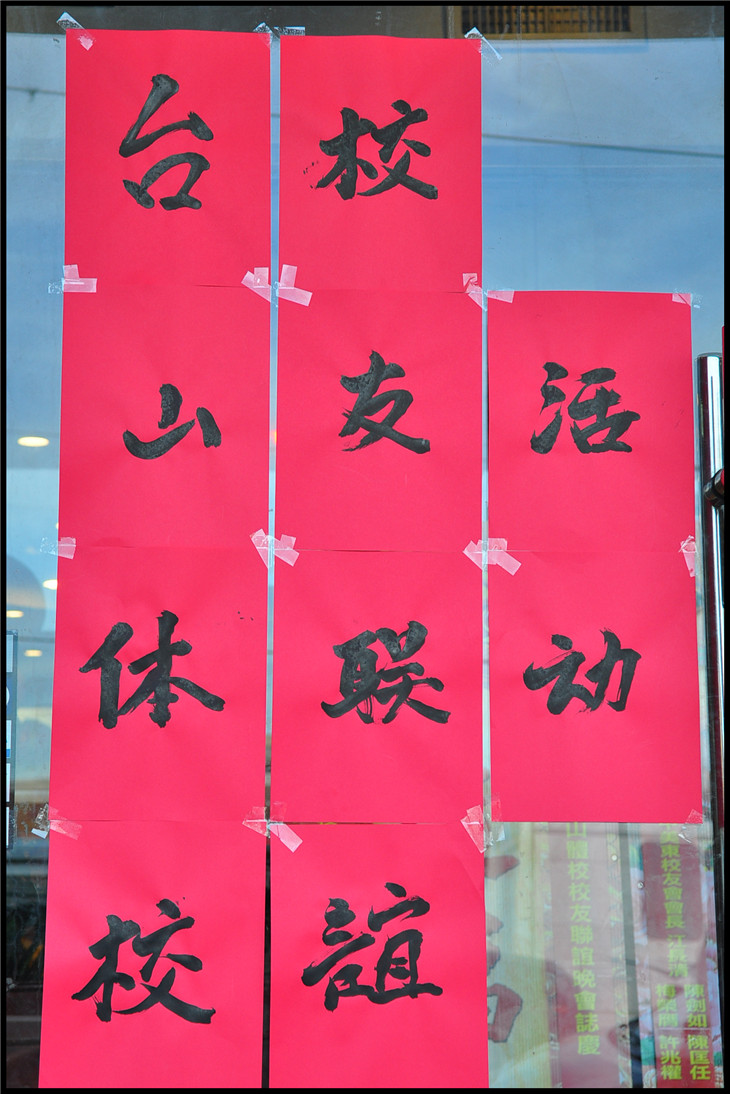 台山体校
校友联誼
活动
山體校校友聯誼晚會誌慶
東校友會會長
陳劍如
陳匡任
許兆權